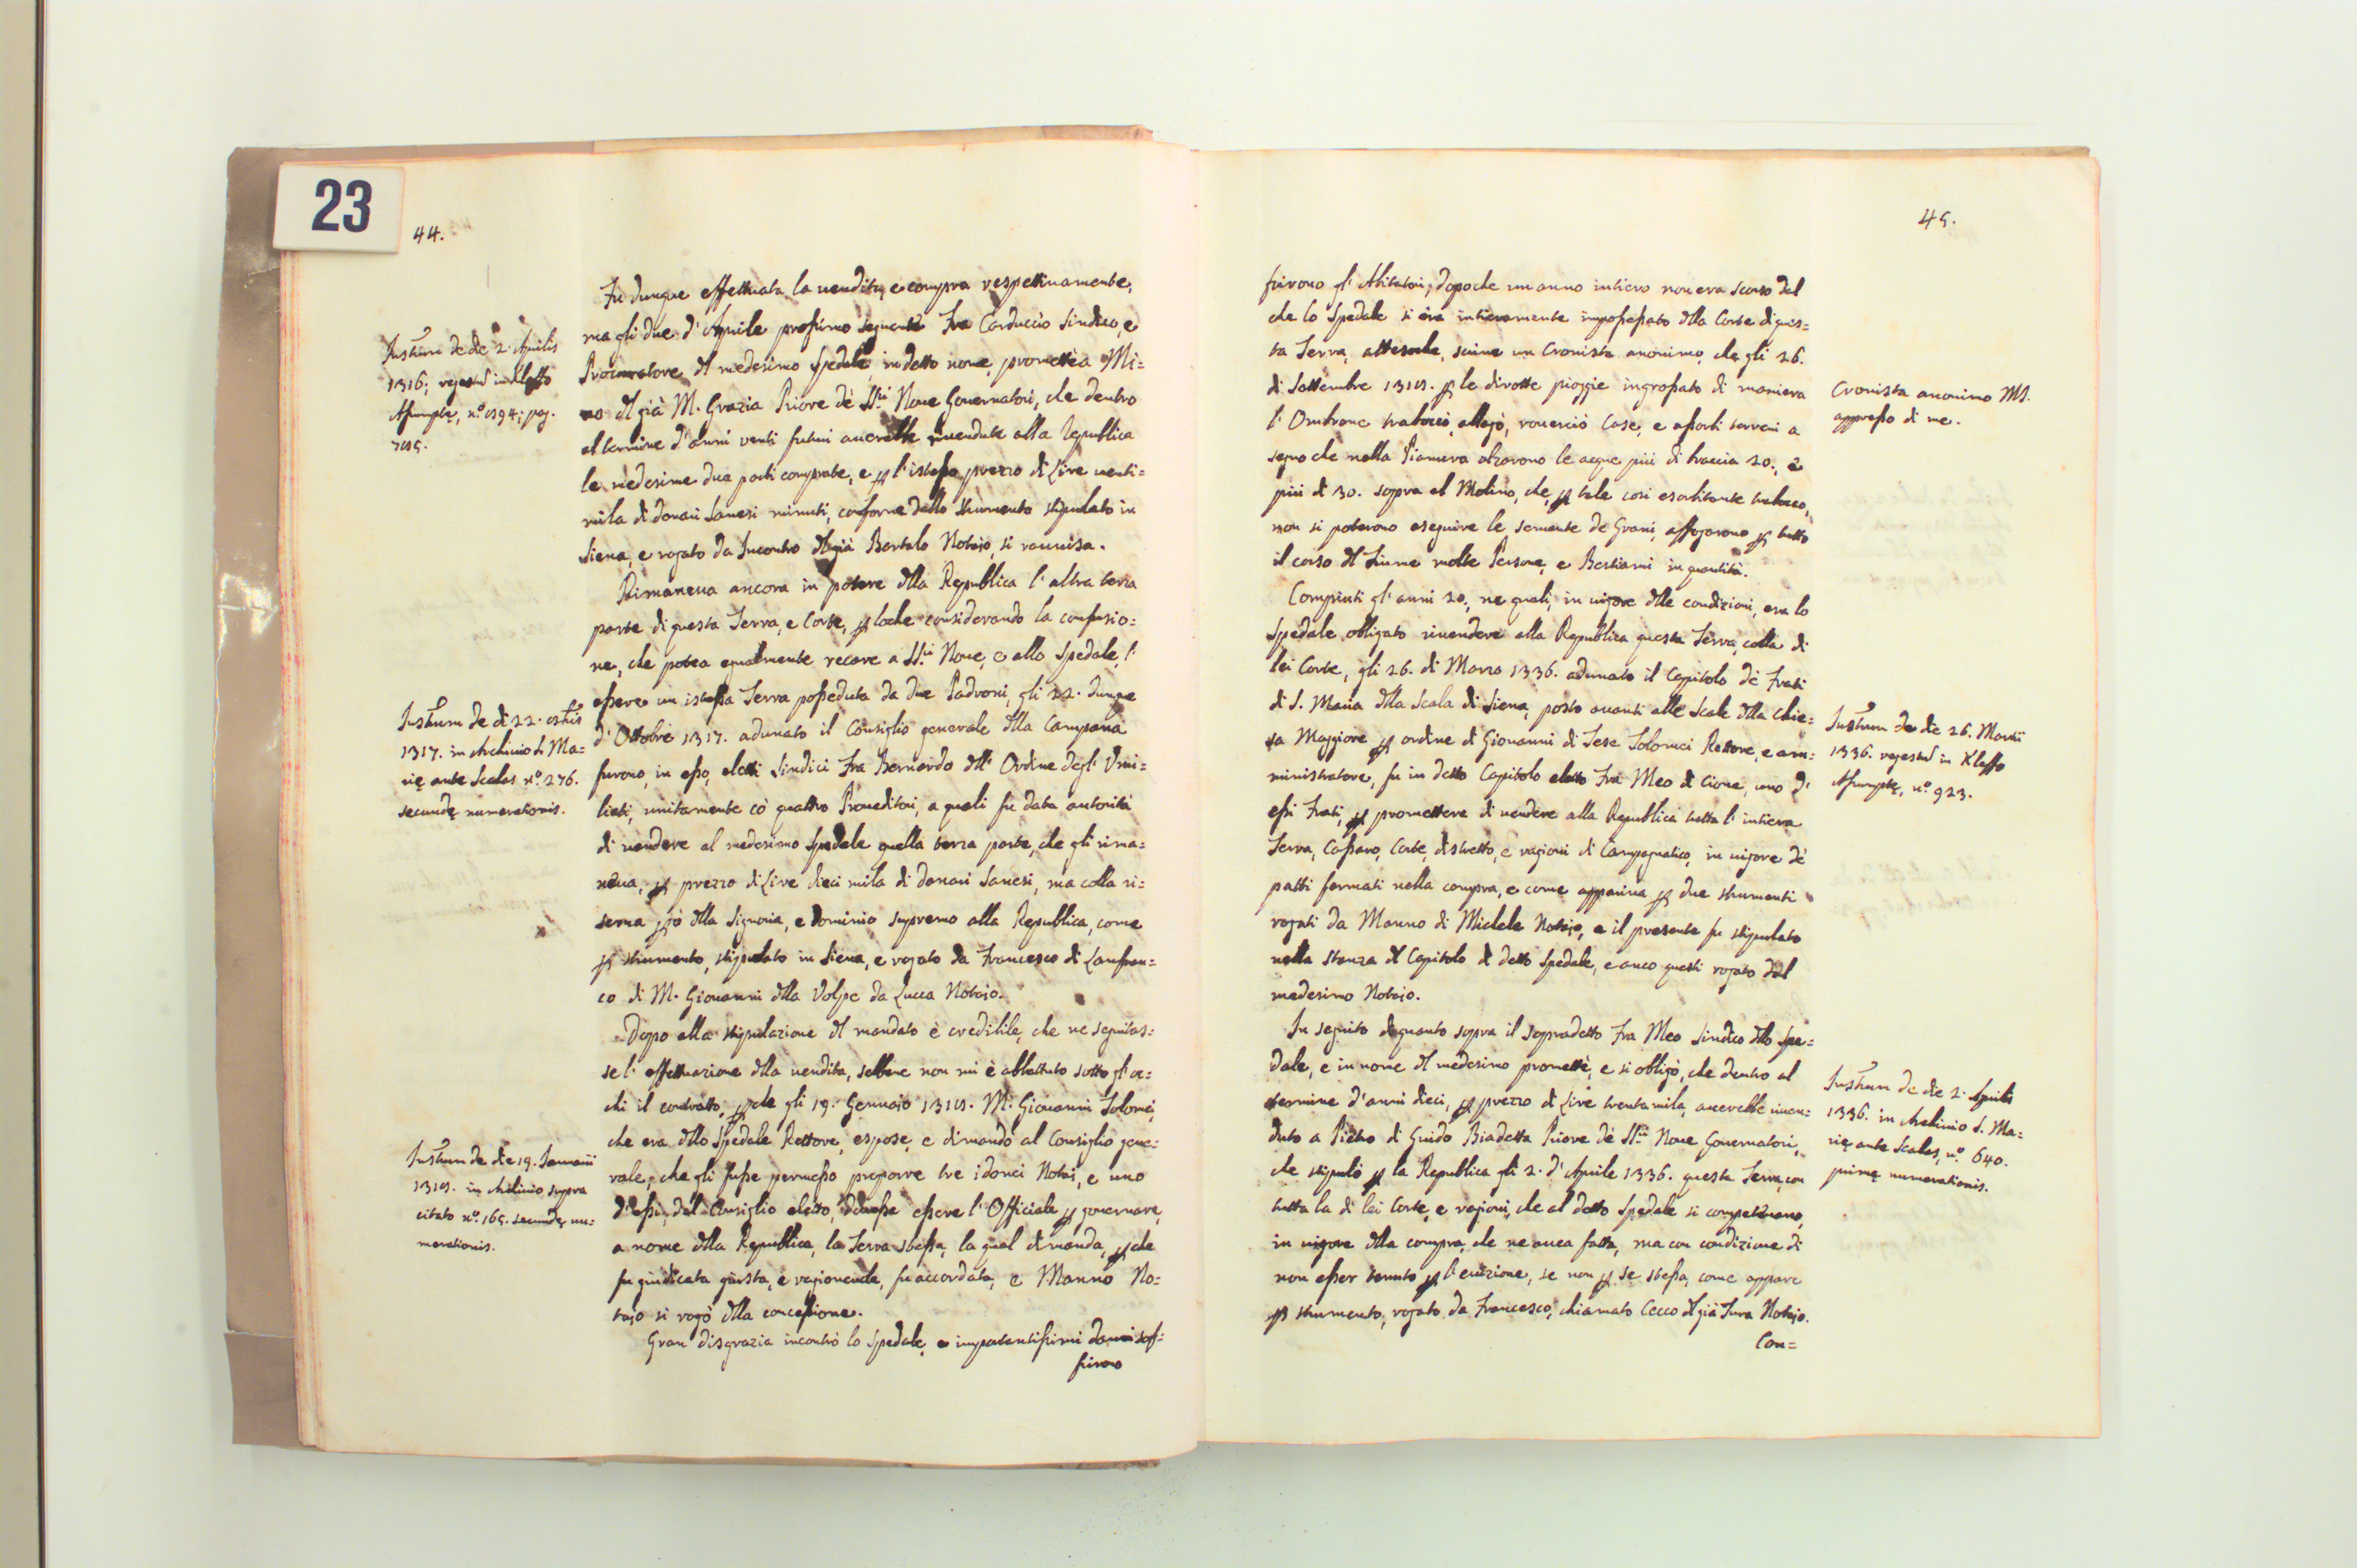 23
44.
Fù dunque effettuata la vendita, e compra respettivamente,
ma gli due d'Aprile prossimo seguente Fra Carduccio Sindico, e
Procuratore dl medesimo Spedale, in detto nome, promettèa Mi=
no dl già M. Grazia Priore dè SS.ri Nove Governatori, che dentro
al termine d'anni venti futuri averebbe rivendute alla Republica
le medesime due parti comprate, e p l'istesso prezzo di Lire venti=
mila di denari Sanesi minuti, conforme dallo strumento stipulato in
Siena, e rogato da Incontro dl già Bartalo Notaio, si ravvisa.
Rimaneva ancora in potere dlla Republica l'altra terza
parte di questa Terra, e Corte, p loche considerando la confusio=
ne, che potea egualmente recare a SS.ri Nove, e allo Spedale, l'
essere un istessa Terra posseduta da due Padroni, gli 22. dunque
d'Ottobre 1317. adunato il Consiglio generale dlla Campana
furono, in esso, eletti Sindici Fra Bernardo dll'Ordine degl'Umi=
liati, unitamente cò quattro Proveditori, a quali fu data autorità
di vendere al medesimo Spedale quella terza parte, che gli rima=
neva, p prezzo di Lire dieci mila di denari Sanesi, ma colla ri=
serva pò dlla Signoria, e dominio supremo alla Republica, come
p strumento, stipulato in Siena, e rogato da Francesco di Lanfran=
co di M. Giovanni dlla Volpe da Lucca Notaio.
Dopo alla stipulazione dl mandato è credibile, che ne seguitas=
se l'effettuazione dlla vendita, sebene non mi è abbattuto sotto gl'oc=
chi il contratto, p che gli 19. Gennaio 1318. M. Giovanni Tolomei,
che era dllo Spedale Rettore, espose, e dimandò al Consiglio gene=
rale, che gli fusse permesso proporre tre idonei Notai, e uno
d'essi, dal Consiglio eletto, dovesse essere l'Officiale p governare,
a nome dlla Republica, la Terra stessa, la qual dimanda, p che
fu giudicata giusta, e ragionevole, fu accordata, e Manno No=
taio si rogò dlla concessione.
Gran disgrazia incontrò lo Spedale, e importantissimi danni sof=
frirono
Instrum de die 2. Aprilis
1316; regestr in Kleffo
Assumptę, n.o 894; pag.
785.
Instrum de di 22. 8bris
1317. in Archivio S. Ma=
rię ante Scalas n.o 276.
secundę numerationis.
Instrum de die 19. Januarii
1318. in Archivio supra
citato n.o 165. secundę nu=
merationis.
45.
frirono gl'Abitatori, dopoche un anno intiero non era scorso dal
che lo Spedale si era intieramente impossessato dlla Corte di ques=
ta Terra, attesoche, scrive un Cronista anonimo, che gli 26.
di Settembre 1318. p le dirotte pioggie ingrossato di maniera
l'Ombrone traboccò, allagò, rovesciò Case, e asportò terreni a
segno che nella Pianura alzorono le acque più di braccia 20., e
più di 30. sopra al Molino, che, p tale così esorbitante trabocco,
non si poterono eseguire le semente de Grani, affogorono p tutto
il corso dl Fiume molte Persone, e Bestiami in quantità.
Compiuti gl'anni 20., ne quali, in vigore dlle condizioni, era lo
Spedale obligato rivendere alla Republica questa Terra, colla di
lei Corte, gli 26. di Marzo 1336. adunato il Capitolo dè Frati
di S. Maria dlla Scala di Siena, posto avanti alle Scale dlla Chie=
sa Maggiore p ordine di Giovanni di Tese Tolomei Rettore, e am=
ministratore, fu in detto Capitolo eletto Fra Meo di Cione, uno d'
essi Frati, p promettere di vendere alla Republica tutta l'intiera
Terra, Cassaro, Corte, distretto, e ragioni di Campagnatico, in vigore dè
patti fermati nella compra, e come appariva p due strumenti
rogati da Manno di Michele Notaio, e il presente fu stipulato
nella stanza dl Capitolo di detto Spedale, e anco questi rogato dal
medesimo Notaio.
In seguito di quanto sopra il sopradetto Fra Meo Sindico dllo Spe=
dale, e in nome dl medesimo promette, e si obligò, che dentro al
termine d'anni dieci, p prezzo di Lire trentamila, averebbe riven=
duto a Pietro di Guido Biadetta Priore dè SS.ri Nove Governatori,
che stipulò p la Republica gli 2. d'Aprile 1336. questa Terra, con
tutta la di lei Corte, e ragioni, che al detto Spedale si competevano,
in vigore dlla compra, che ne avea fatta, ma con condizione di
non esser tenuto p l'evizione, se non p se stessa, come appare
p strumento, rogato da Francesco, chiamato Cecco dl già Tura Notaio.
Con=
Cronista anonimo MS.
appresso di me.
Instrum de die 26. Martii
1336. regestr in Kleffo
Assumptę, n.o 923.
Instrum de die 2. Aprilis
1336. in Archivio S. Ma=
rię ante Scalas, n.o 640.
primę numerationis.